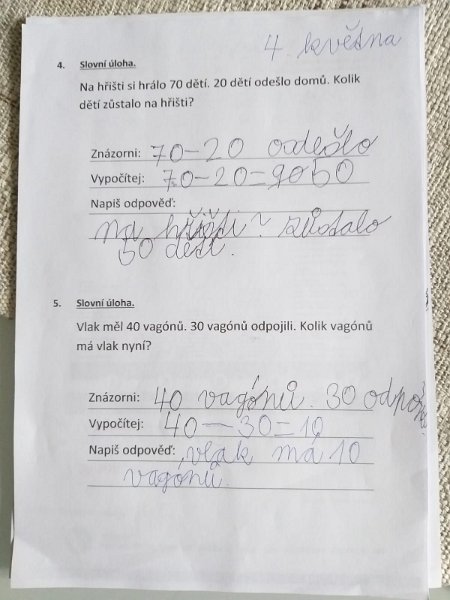 4. května
4. Slovní úloha.
Na hřišti si hrálo 70 dětí. 20 dětí odešlo domů. Kolik
dětí zůstalo na hřišti?
Znázorni: 70-20 odešlo
Vypočítej: 70-20=9050
Napiš odpověď:
na hřišti zůstalo
50 dětí.
5. Slovní úloha.
Vlak měl 40 vagónů. 30 vagónů odpojili. Kolik vagónů
má vlak nyní?
Znázorni: 40 vagónů. 30
Vypočítej: 40-30=10
Napiš odpověď: vlak má 10
vagónů.